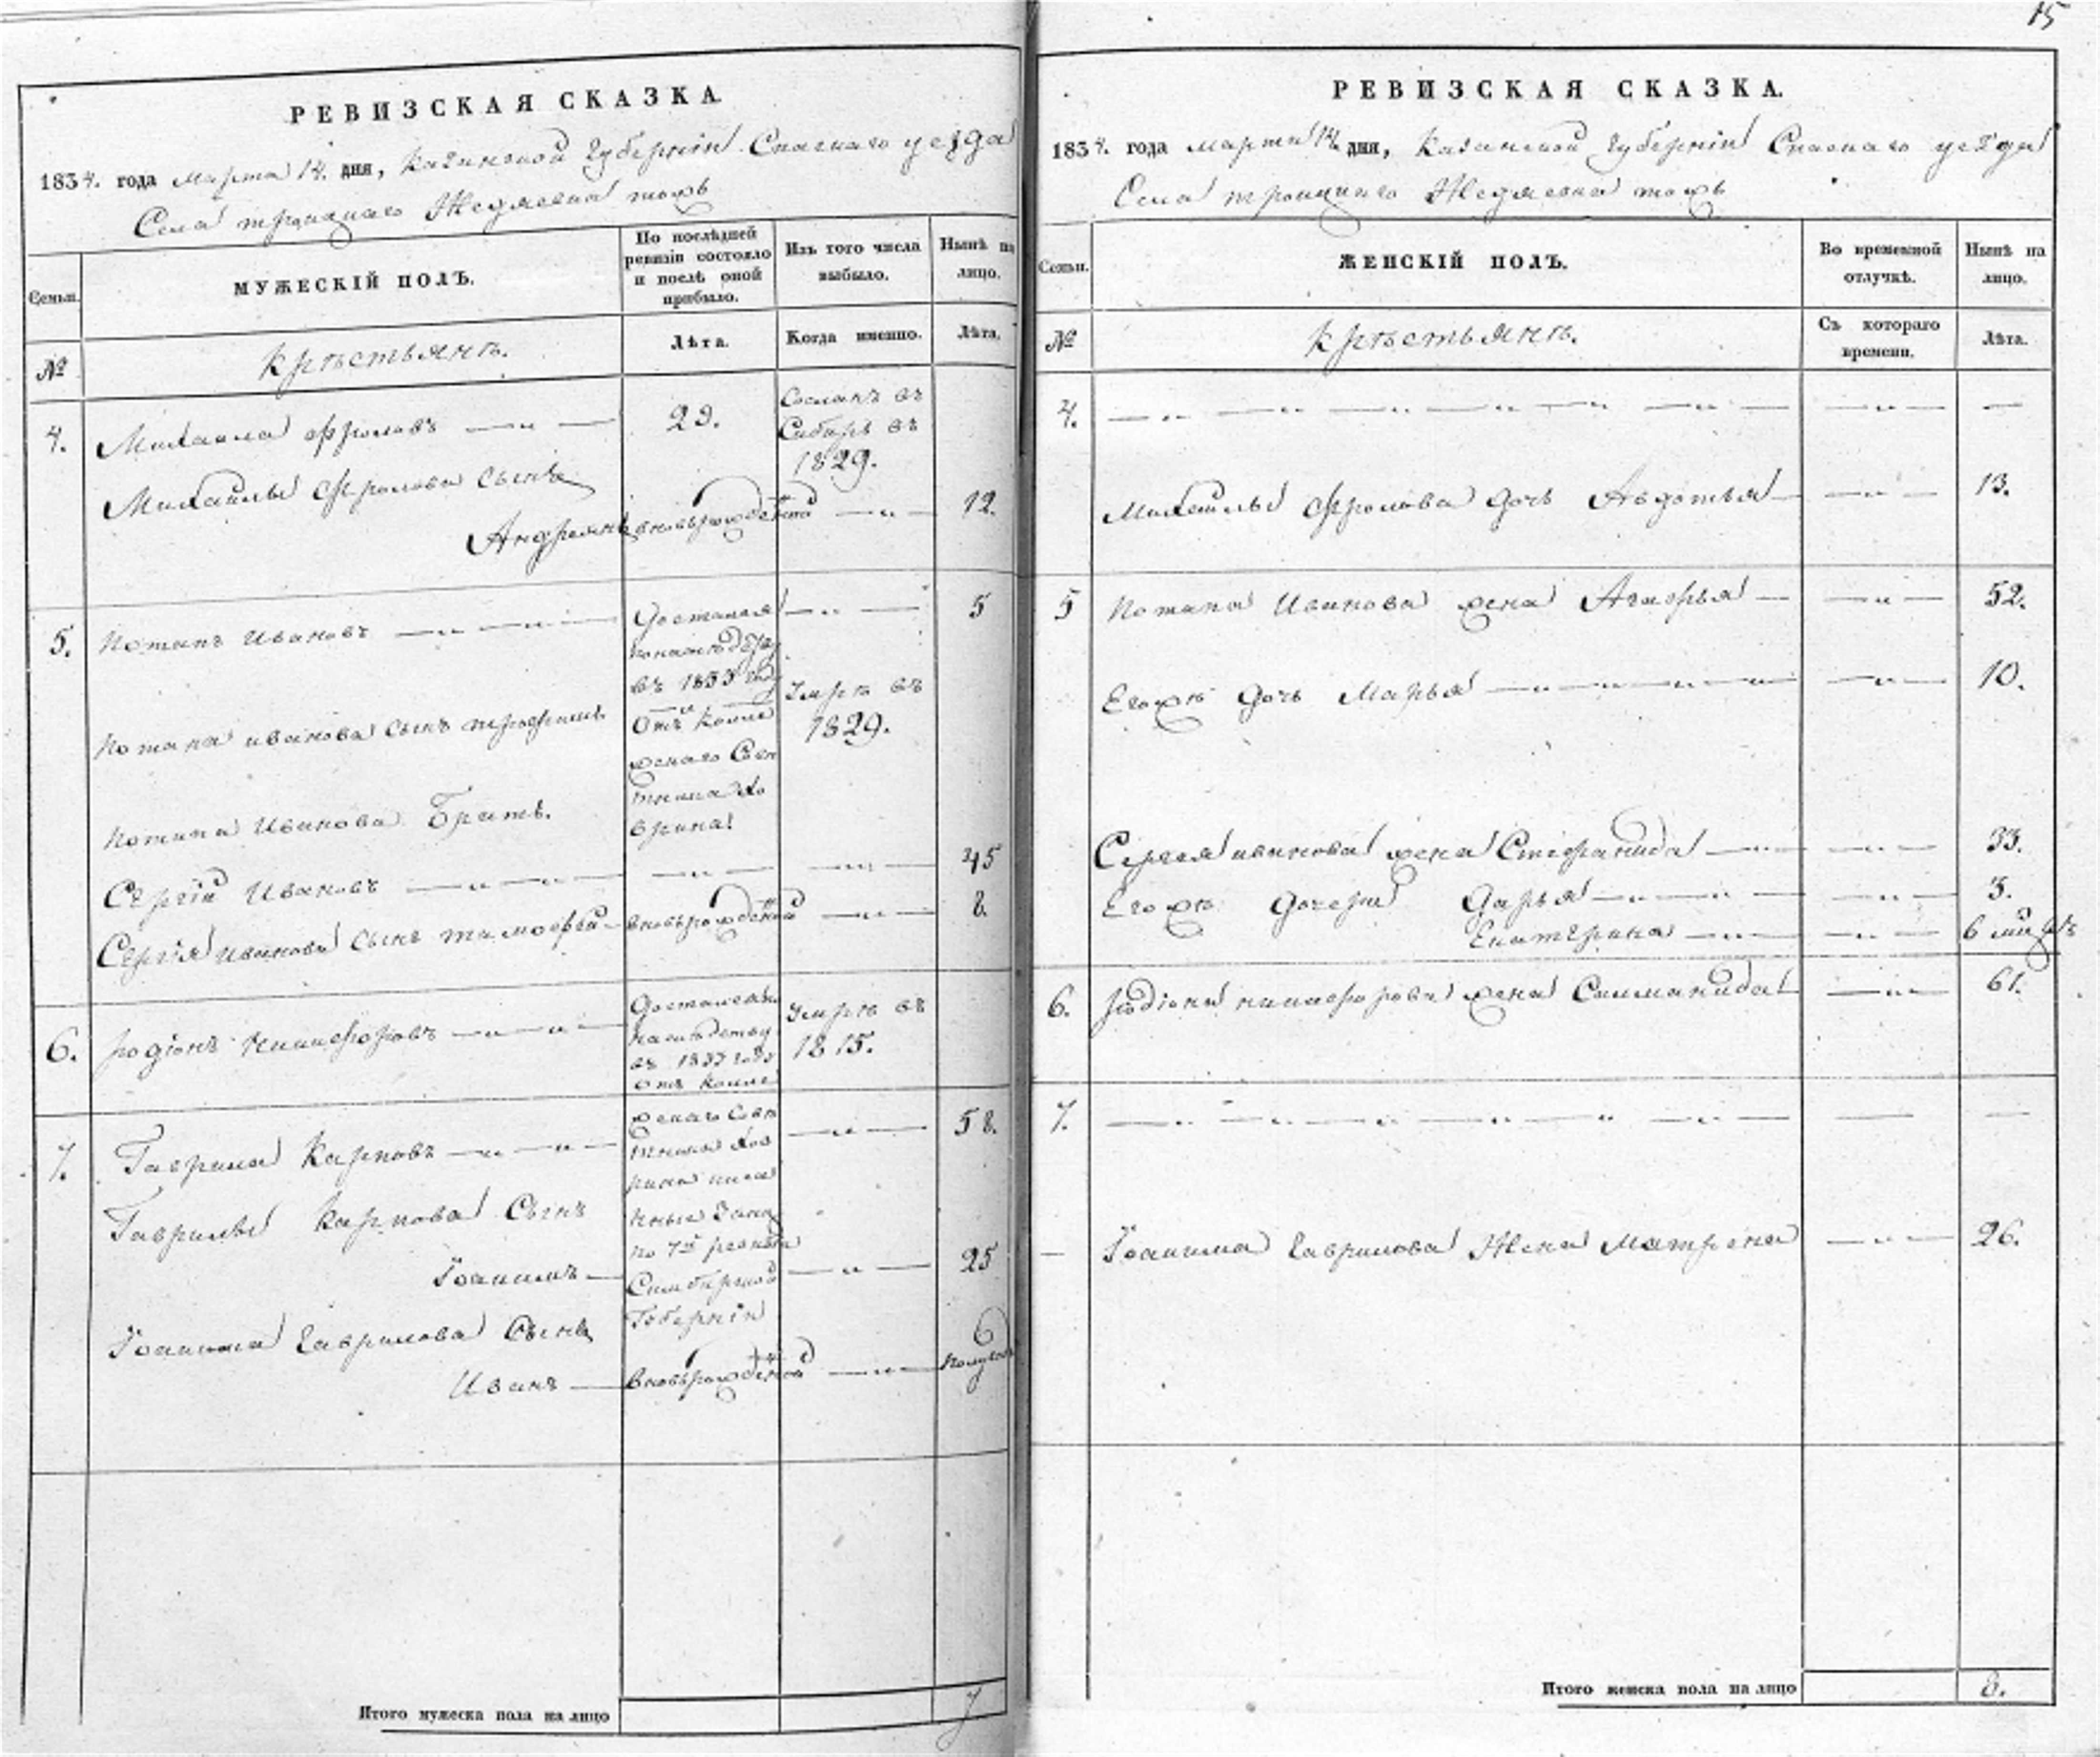 РЕВИЗСКАЯ СКАЗКА.
1834. года марта 14. дня, Казанской Губернiи Спаскаго уезда
Села троицкаго Жедяевка тожъ
Семьи.
МУЖЕСКIЙ ПОЛЪ.
По послѣдней ревизiи состояло и послѣ оной прибыло.
Изъ того числа выбыло.
Нынѣ на лицо.
№
крѣстьянѣ.
Лѣта.
Когда именно.
Лѣта.
4.
Михаила фроловъ
29.
Сосланъ въ
Сибирь въ
1829.
Михайлы Фролова Сынъ
Андреянъ
вновьрожденной
12.
5.
Потапъ Ивановъ
Достался
въ 1833 году
5
Потапа иванова Сынъ трофимъ
Отъ Колле
жскаго Сов
тника Хо
врина
Умрѣ въ
1829.
Потапа Иванова Братъ.
Сергiй Ивановъ
45
Сергѣя Иванова Сынъ тимофей
вновьрожденной
8.
6.
родiонъ никифоровъ
Достался по
наслѣдству
въ 1833 году
Отъ Колле
Умрѣ въ
1815.
7.
Гаврила Карповъ
жскаго Сов
тника Хов
рина
58.
Гаврилы Карпова Сынъ
Iоакимъ
по 7й ревизiи
Симбирской
Губернiи
25
Iоакима Гаврилова Сынъ
Иванъ
вновьрожденной
Полугода
Итого мужеска пола на лицо
7
15
РЕВИЗСКАЯ СКАЗКА.
1834. года марта 14. дня, Казанской Губернiи Спаскаго уезда
Села троицкаго Жедяевка тожъ
Семьи.
ЖЕНСКIЙ ПОЛЪ.
Во временной отлучкѣ.
Нынѣ на лицо.
№
крѣстьянѣ.
Съ котораго времени.
Лѣта.
4.
Михайлы Фролова дочь Авдотья
13.
5
Потапа Иванова жена Агафья
52.
Егожѣ дочь Марья
10.
Сергея иванова жена Стефанида
33.
Егожѣ дочери Дарья
3.
Екатерина
6
6.
Родiона никифорова жена Соломанида
61.
7.
Iоакима Гаврилова Жена Матрена
26.
Итого женска пола на лицо
8.